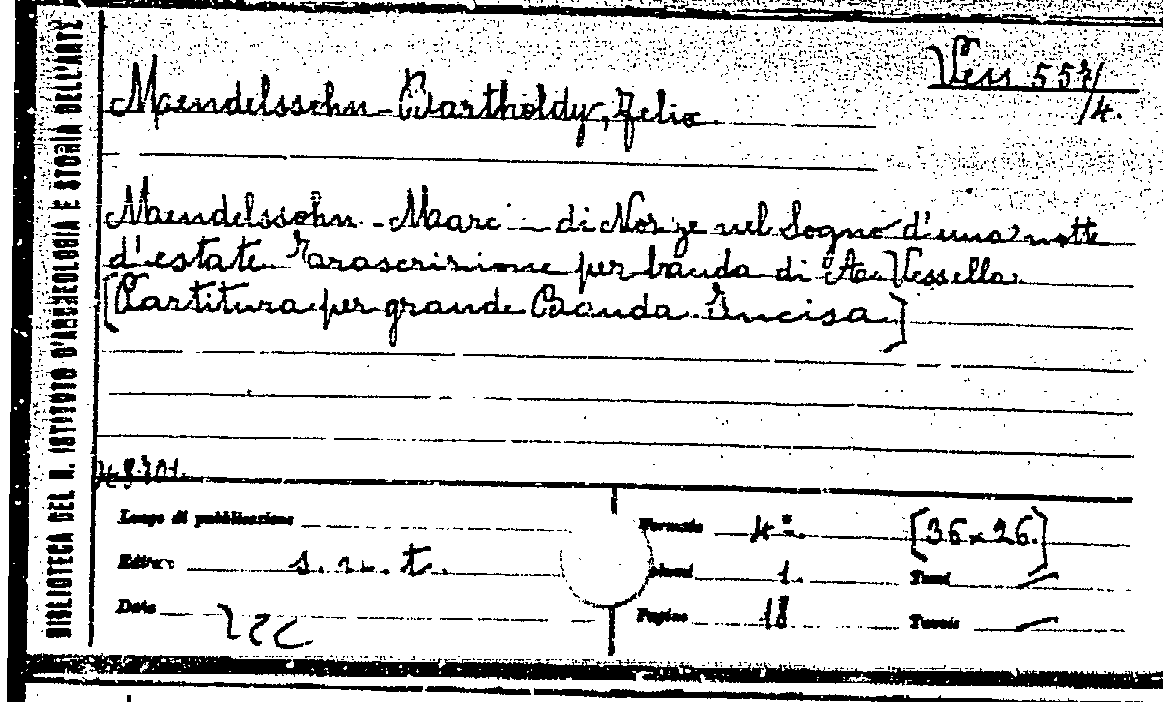 BIBLIOTECA DEL R. ISTITUTO D'ARCHEOLOGIA E STORIA DELL'ARTE
Vess 557/4.
Maendelssohn-Bartholdy, Felix.
Maendelssohn - Marci di Nozze nel Sogno d'una notte
d'estate Trascrizione per banda di A. Vessella.
[Partitura per grande Banda Incisa.]
Luogo di pubblicazione
Formato 4º. [36x26.]
Editore s.n.t.
Volumi 1.
Tomi —
Data
Pagine 18
Tavole —